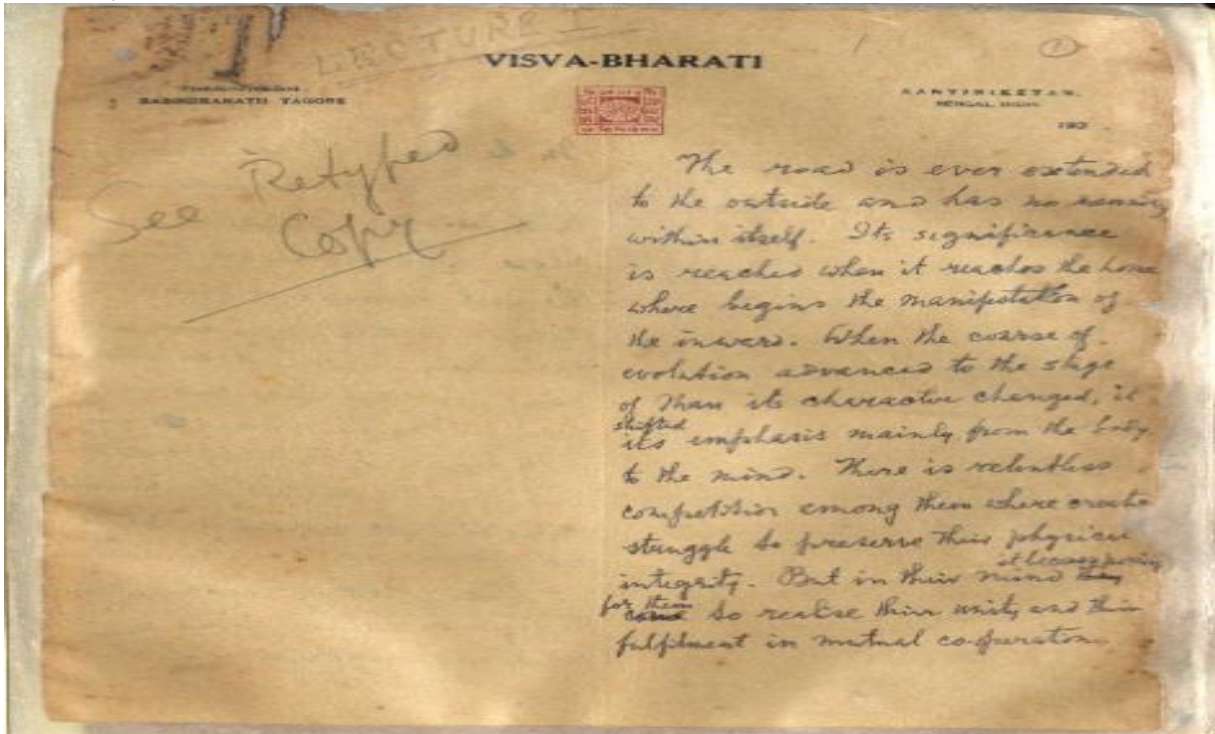 LECTURE I
1
VISVA-BHARATI
RABINDRANATH TAGORE
SANTINIKETAN,
BENGAL, INDIA
193
See Retyped
Copy
The road is ever extended
to the outside and has no meaning
within itself. Its significance
is reached when it reaches the home
where begins the manifestation of
the inward. When the course of
evolution advanced to the stage
of Man its character changed, it
shifted
its emphasis mainly from the body
to the mind. There is relentless
competition among them where
struggle to preserve their physical
integrity. But in their mind they
it becomes
for them
could to realise their unity and their
fulfilment in mutual co-operation.